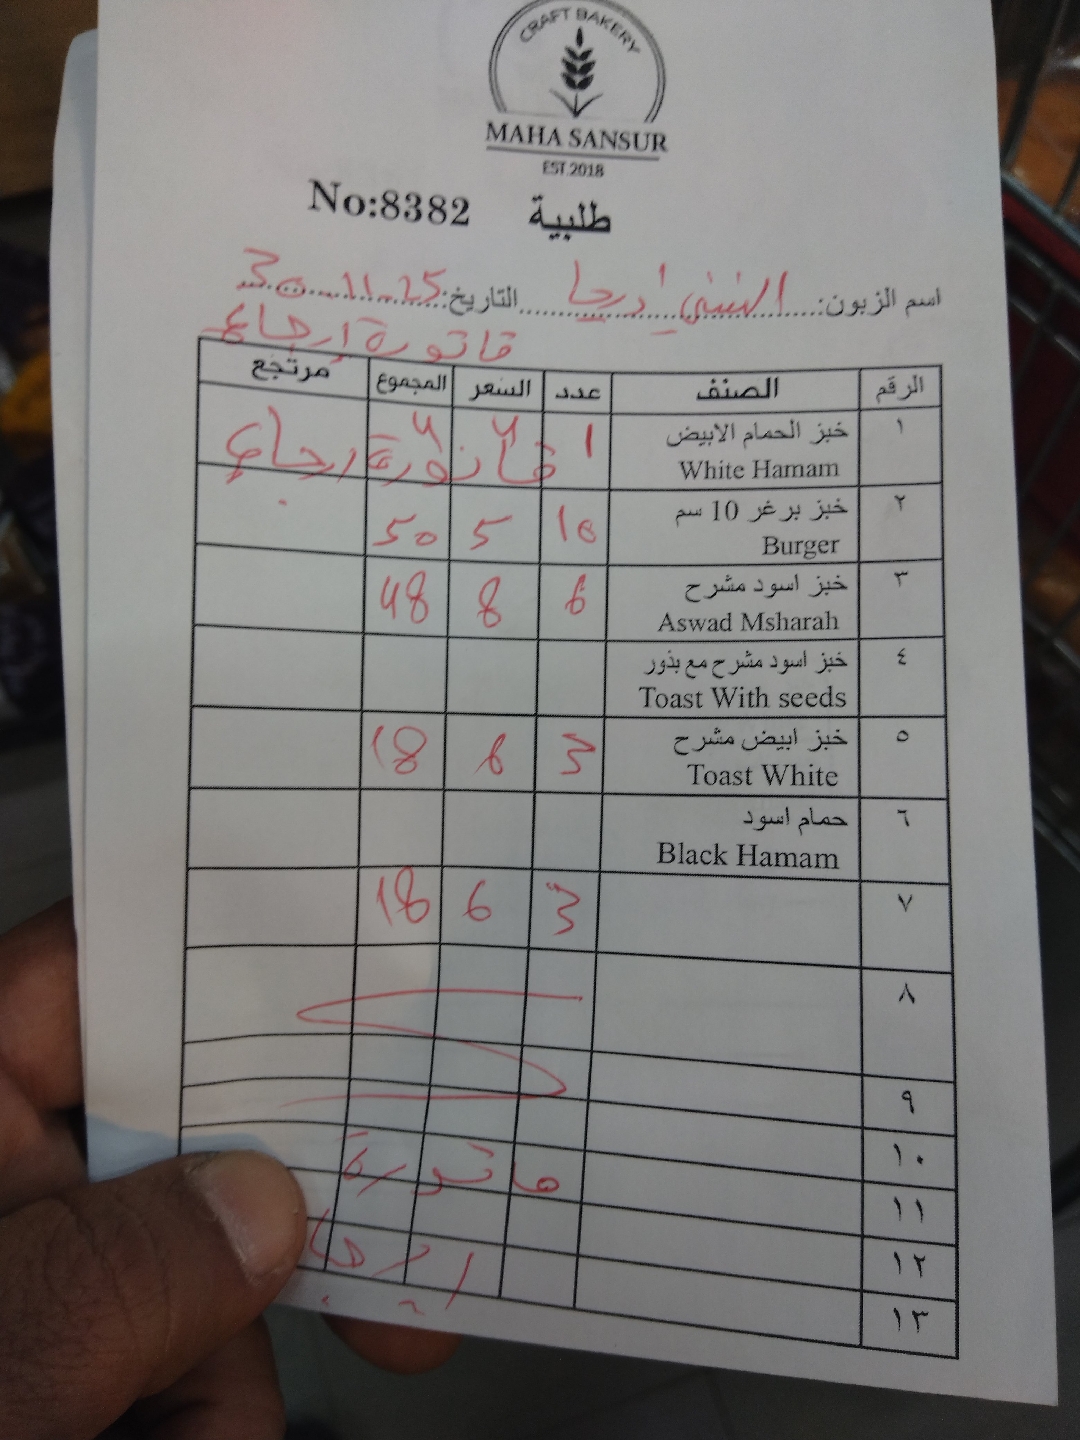 CRAFT BAKERY
MAHA SANSUR
EST.2018
No:8382 طلبية
اسم الزبون: التاريخ: 30.11.25
فاتورة إرجاع
الرقم الصنف عدد السعر المجموع مرتجع
١ خبز الحمام الابيض 1 4 4
White Hamam
فاتورة ارجاع
٢ خبز برغر 10 سم 10 5 50
Burger
٣ خبز اسود مشرح 6 8 48
Aswad Msharah
٤ خبز اسود مشرح مع بذور
Toast With seeds
٥ خبز ابيض مشرح 3 6 18
Toast White
٦ حمام اسود
Black Hamam
٧ 3 6 18
٨
٩
١٠
فاتورة
١١
١٢
١٣